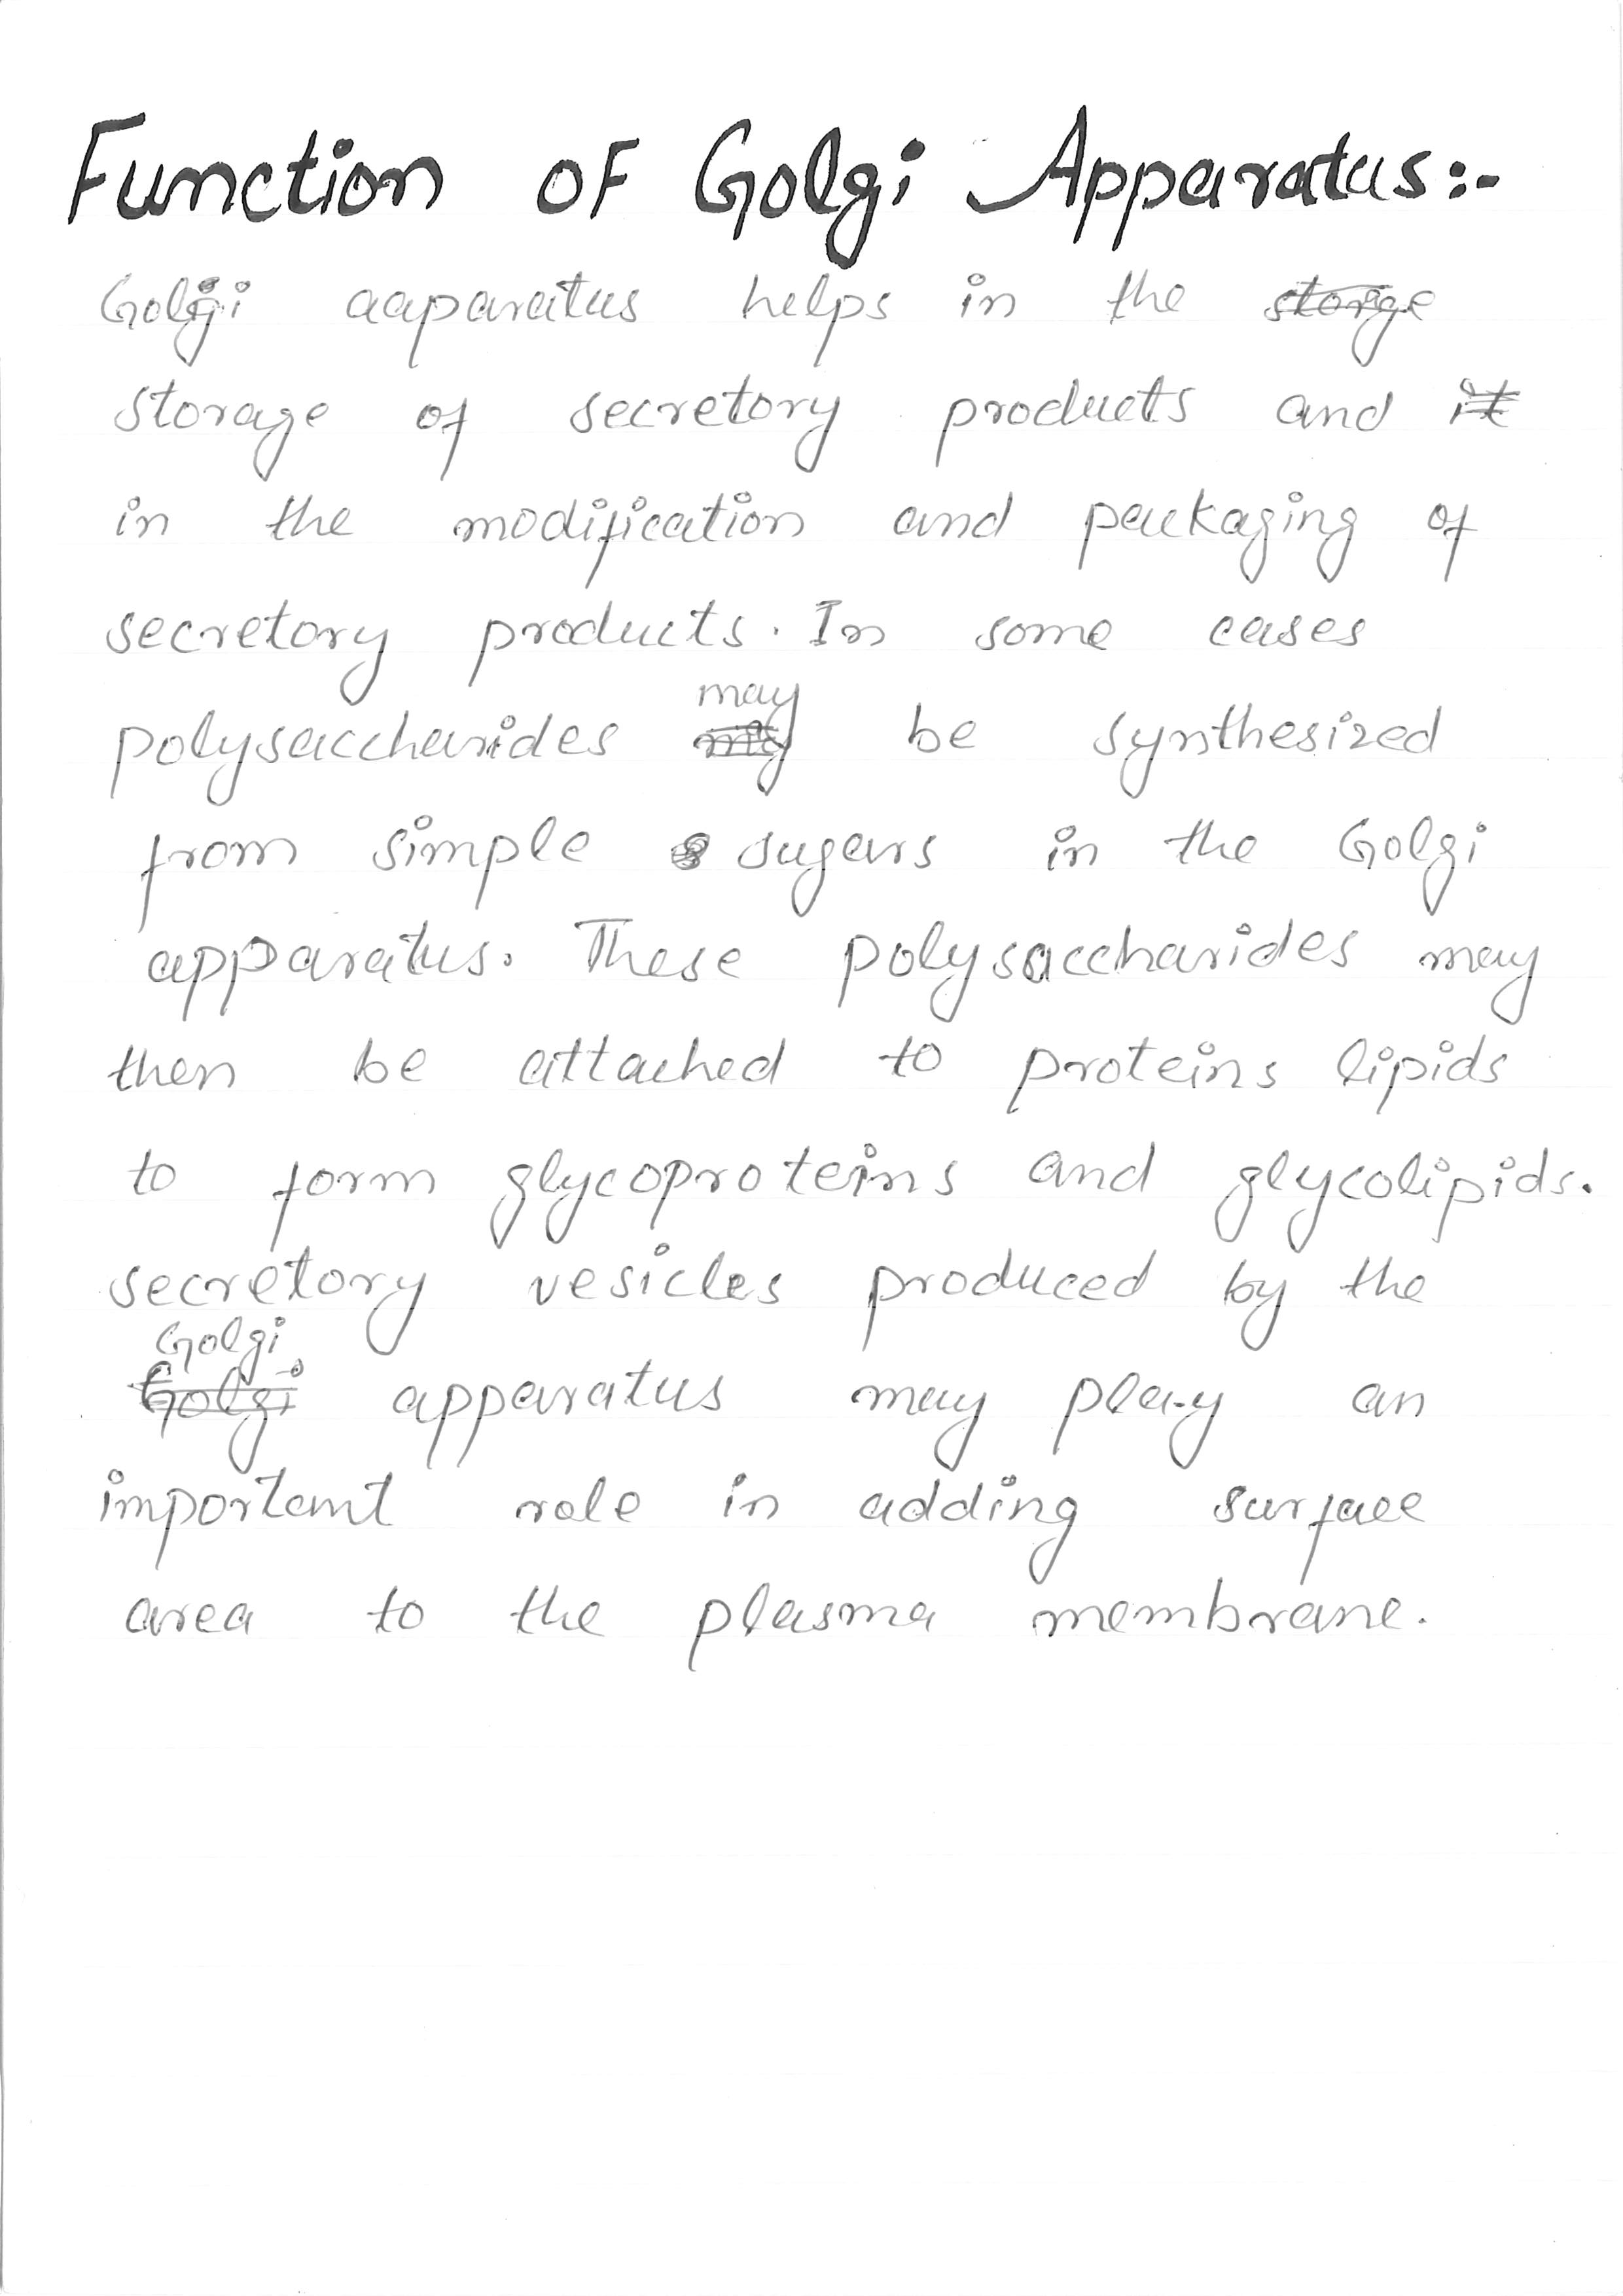 Function of Golgi Apparatus:-
Golgi aaparatus helps in the ~~storge~~
storage of secretory products and ~~it~~
in the modification and packaging of
secretory products. In some cases
may
polysaccharides ~~may~~ be synthesized
from simple sugars in the Golgi
apparatus. These polysaccharides may
then be attached to proteins lipids
to form glycoproteins and glycolipids.
secretory vesicles produced by the
Golgi
~~Golgi~~ apparatus may play an
important role in adding surface
area to the plasma membrane.